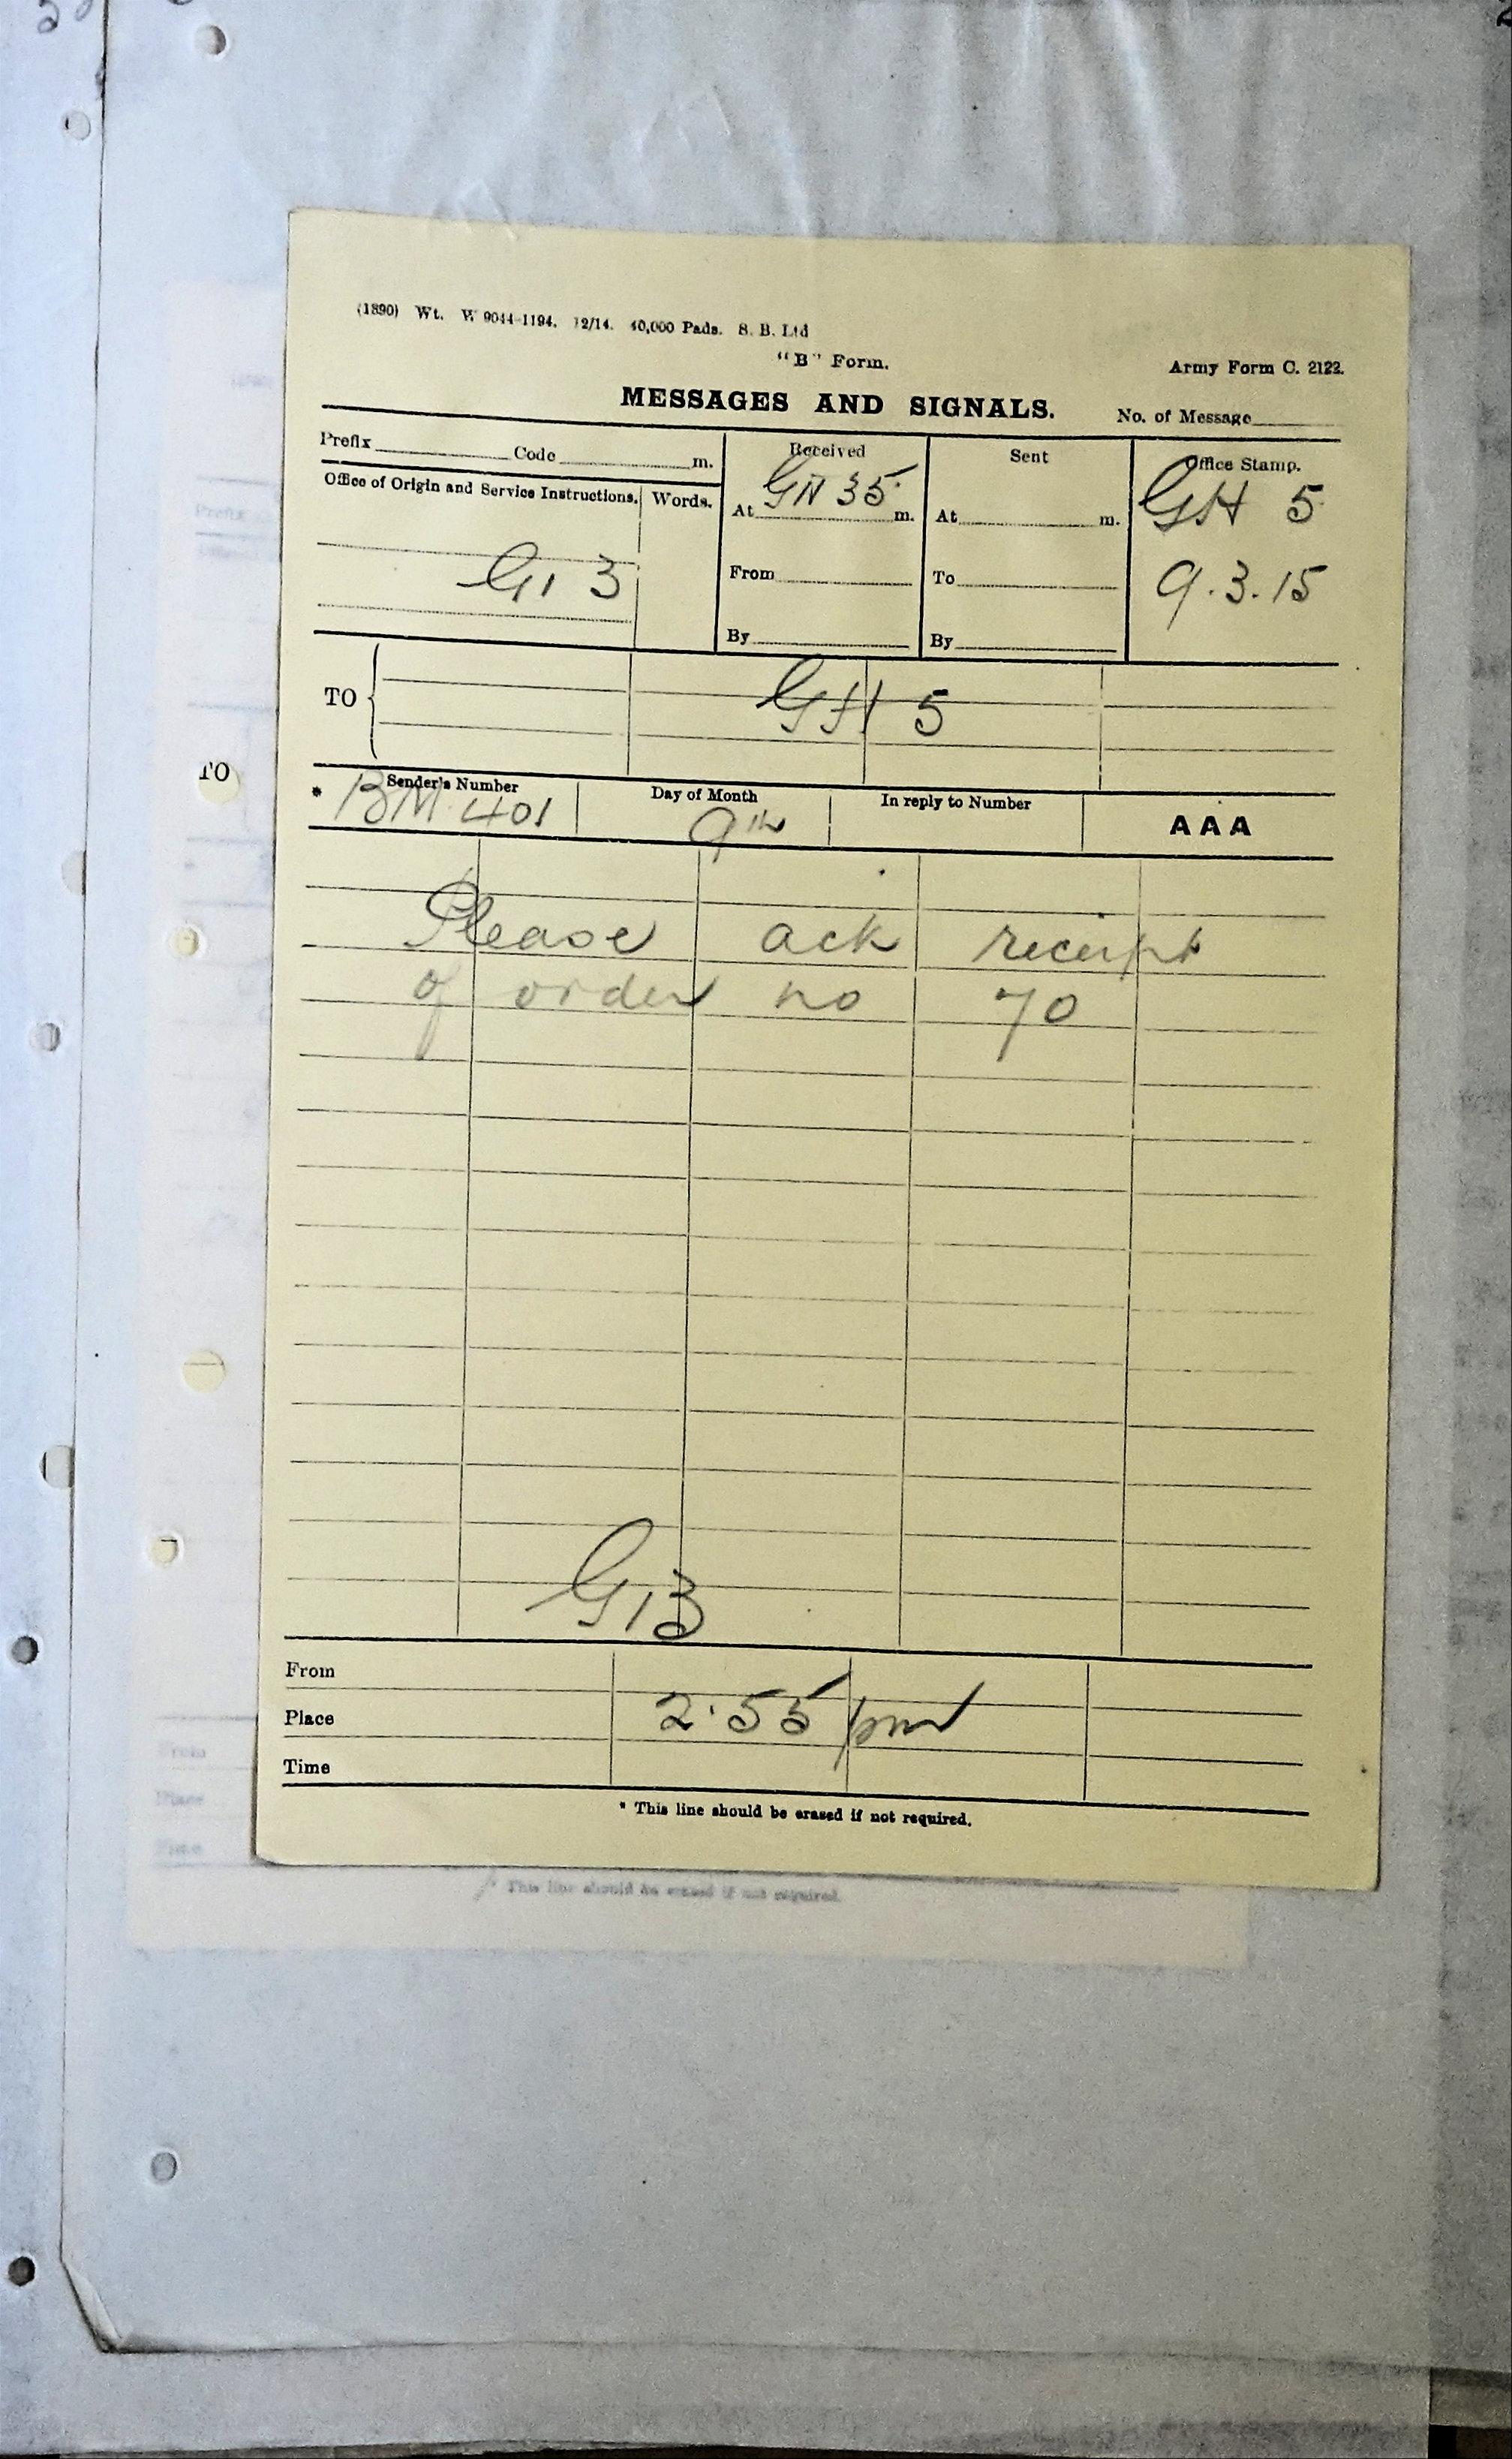 (1890) Wt. W 9044-1194. 12/14. 40,000 Pads. S. B. Ltd
"B" Form.
Army Form C. 2122.
MESSAGES AND SIGNALS.
No. of Message
Prefix Code m.
Received
Sent
Office Stamp.
Office of Origin and Service Instructions.
Words.
At m.
At m.
GH 5
3
From
To
9.3.15
By
By
TO
GH 5
TO
* Sender's Number
Day of Month
In reply to Number
AAA
BM 401
9th
Please ack receipt
of order no 70
From
Place
2.55 pm
Time
* This line should be erased if not required.
Prefix
From
Place
Time
* This line should be erased if not required.